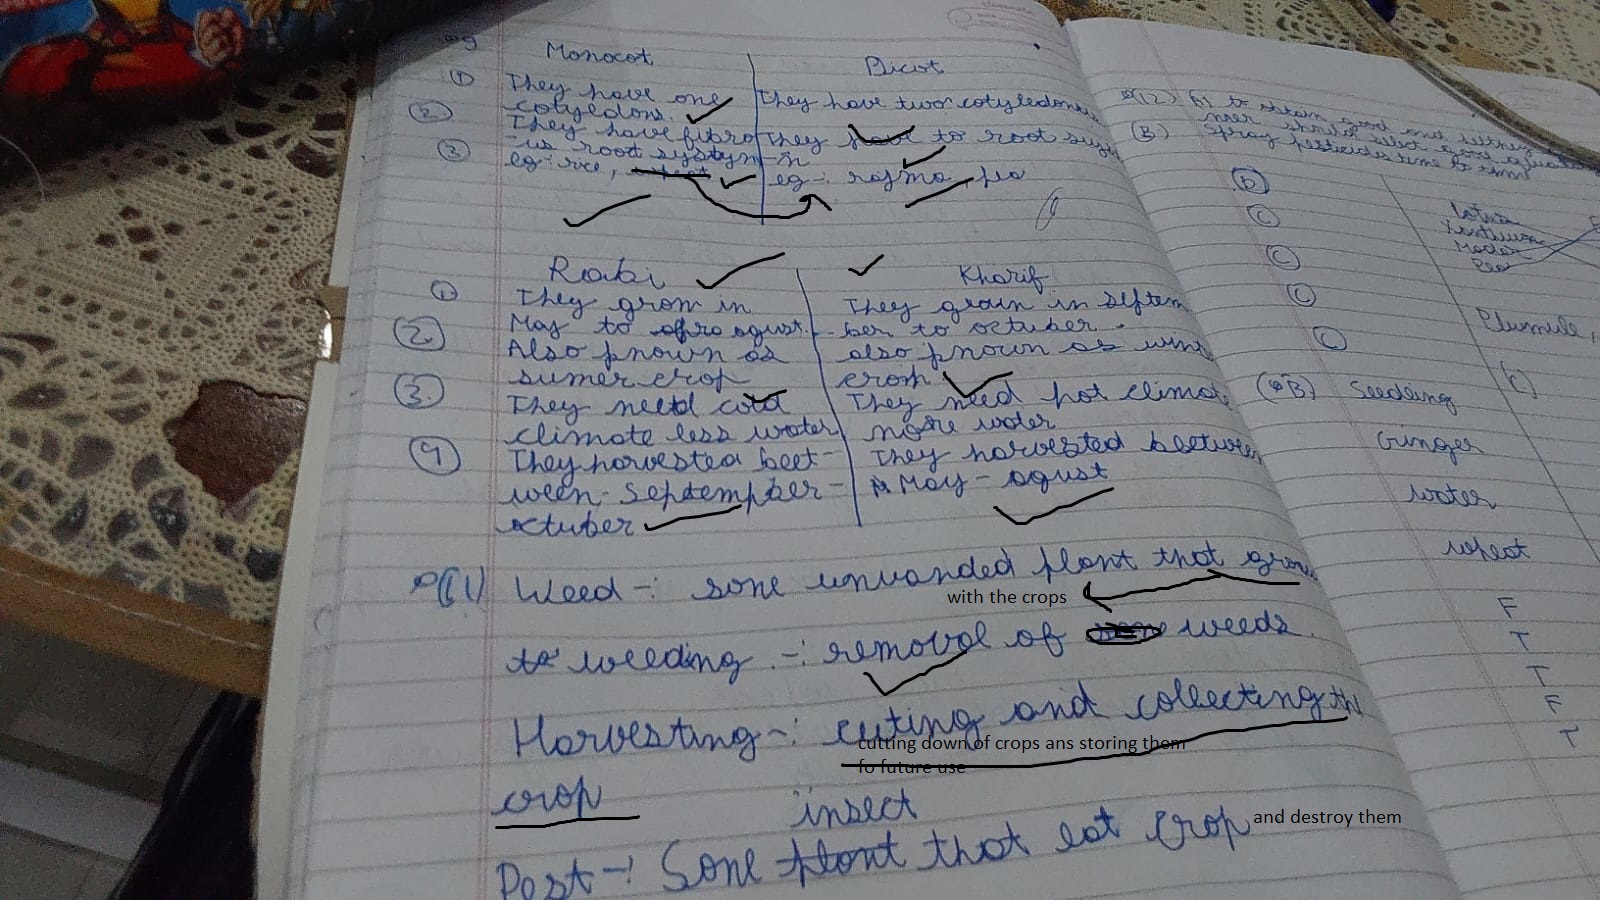 Monocot
Dicot
① They have one cotyledons.
They have two cotyledons
② They have fibro
-us root system
They to root system
③ eg: rice,
eg-: rajma, pea
Rabi
Kharif
① They grow in
May to agust.
They grain in septem
-ber to octuber
② Also pnown as
sumer crop
also pnown as
③ They need cold
climate less water
They need hot climate
more water
④ They harvested beet-
ween- September-
octuber
They harvested between
May - agust
Weed -: sone unvanded plant that grow
with the crops
weeding -: removal of weeds
Harvesting -: cuting and collecting the
cutting down of crops ans storing them
fo future use
crop
insect
Pest -: Sone plant that eat crop
and destroy them
(B)
spray pesticides time to time
Ⓑ
Ⓒ
Ⓒ
Ⓒ
Ⓒ
Plumule,
(C)
Seedling
Ginger
water
wheat
F
T
T
F
T